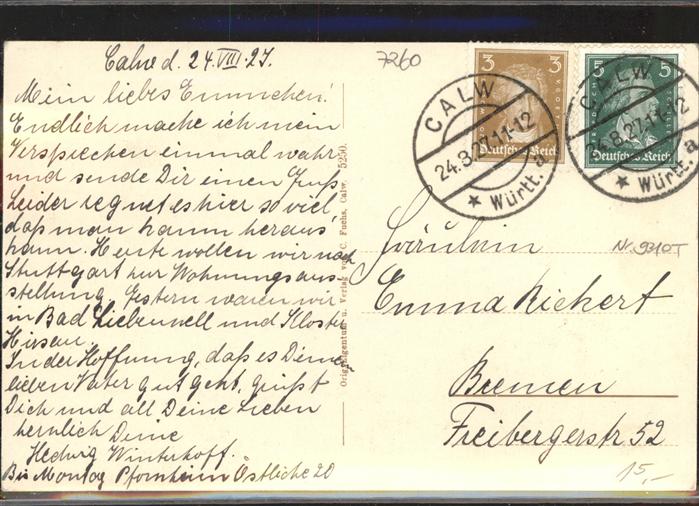 Calw d. 24.VIII.27.
Mein liebes Emmchen!
Endlich mache ich mein
Versprechen einmal wahr
und sende Dir einen Gruß
Leider regnet es hier so viel,
daß man kaum heraus
kann. Heute wollen wir nach
Stuttgart zur Wohnungsaus-
stellung. Gestern waren wir
in Bad Liebenzell und Kloster
Hirsau.
In der Hoffnung, daß es Deinem
lieben Vater gut geht, grüßt
Dich und all Deine Lieben
herzlich Deine
Hedwig Winterhoff.
Bis Montag Pforzheim Östliche 20
Orig. Eigentum u. Verlag von C. Fuchs, Calw. 5250.
7260
3 3
Deutsches Reich
5 5
Deutsches Reich
CALW
24.8.27.11-12
* Württ. a
CALW
24.8.27.11-12
* Württ. a
Fräulein
Nr. 9310T
Emma Richert
Bremen
Freibergerstr 52
15,-